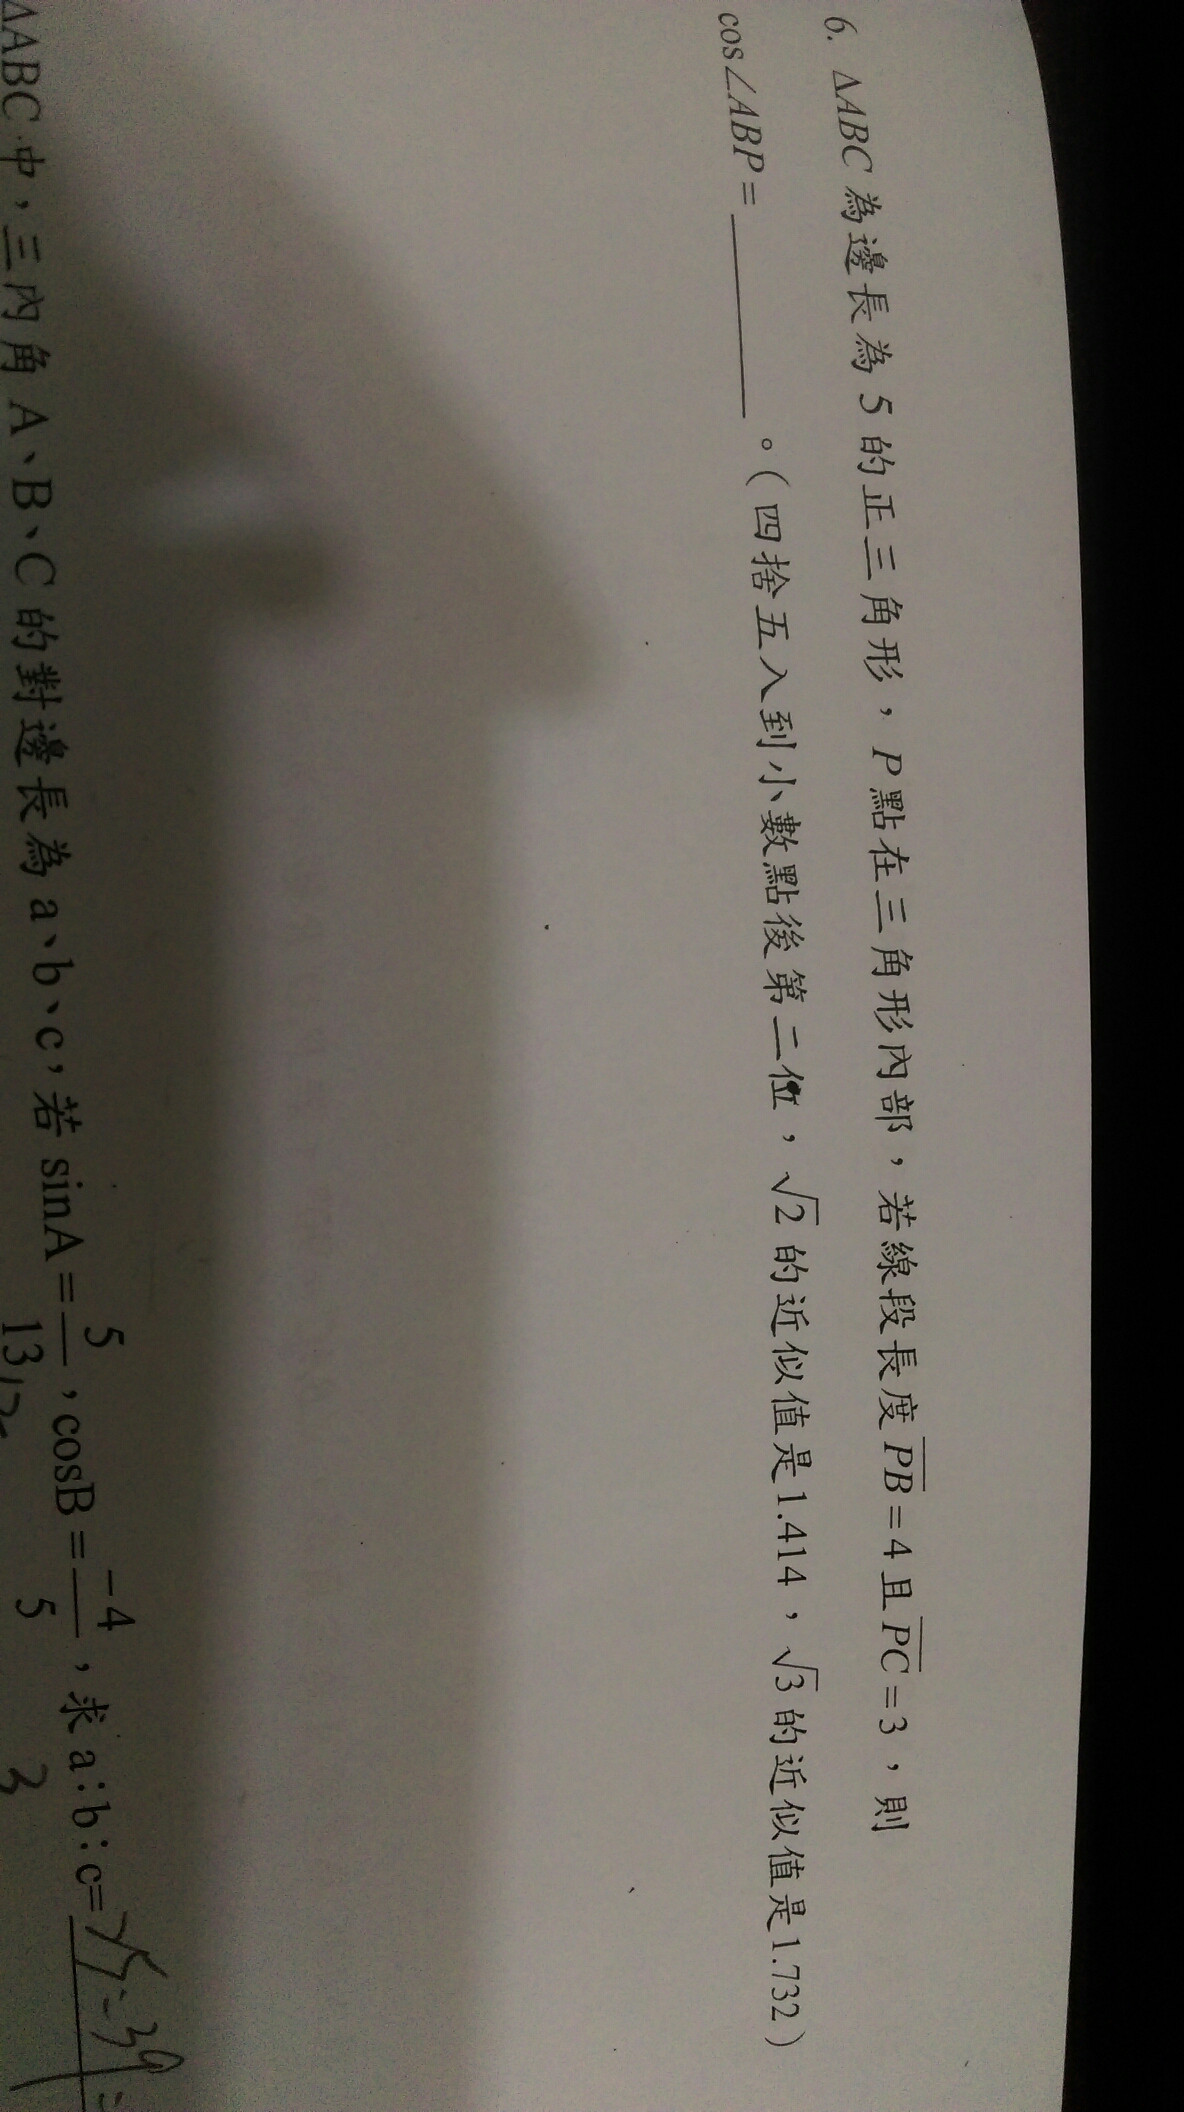 6. ΔABC 為邊長為 5 的正三角形，P 點在三角形內部，若線段長度 \overline{PB}=4 且 \overline{PC}=3，則
cos∠ABP=________。(四捨五入到小數點後第二位，√2 的近似值是1.414，√3 的近似值是1.732)
ΔABC 中，三內角 A、B、C 的對邊長為 a、b、c，若 sinA=5/13，cosB=-4/5，求 a:b:c=
3